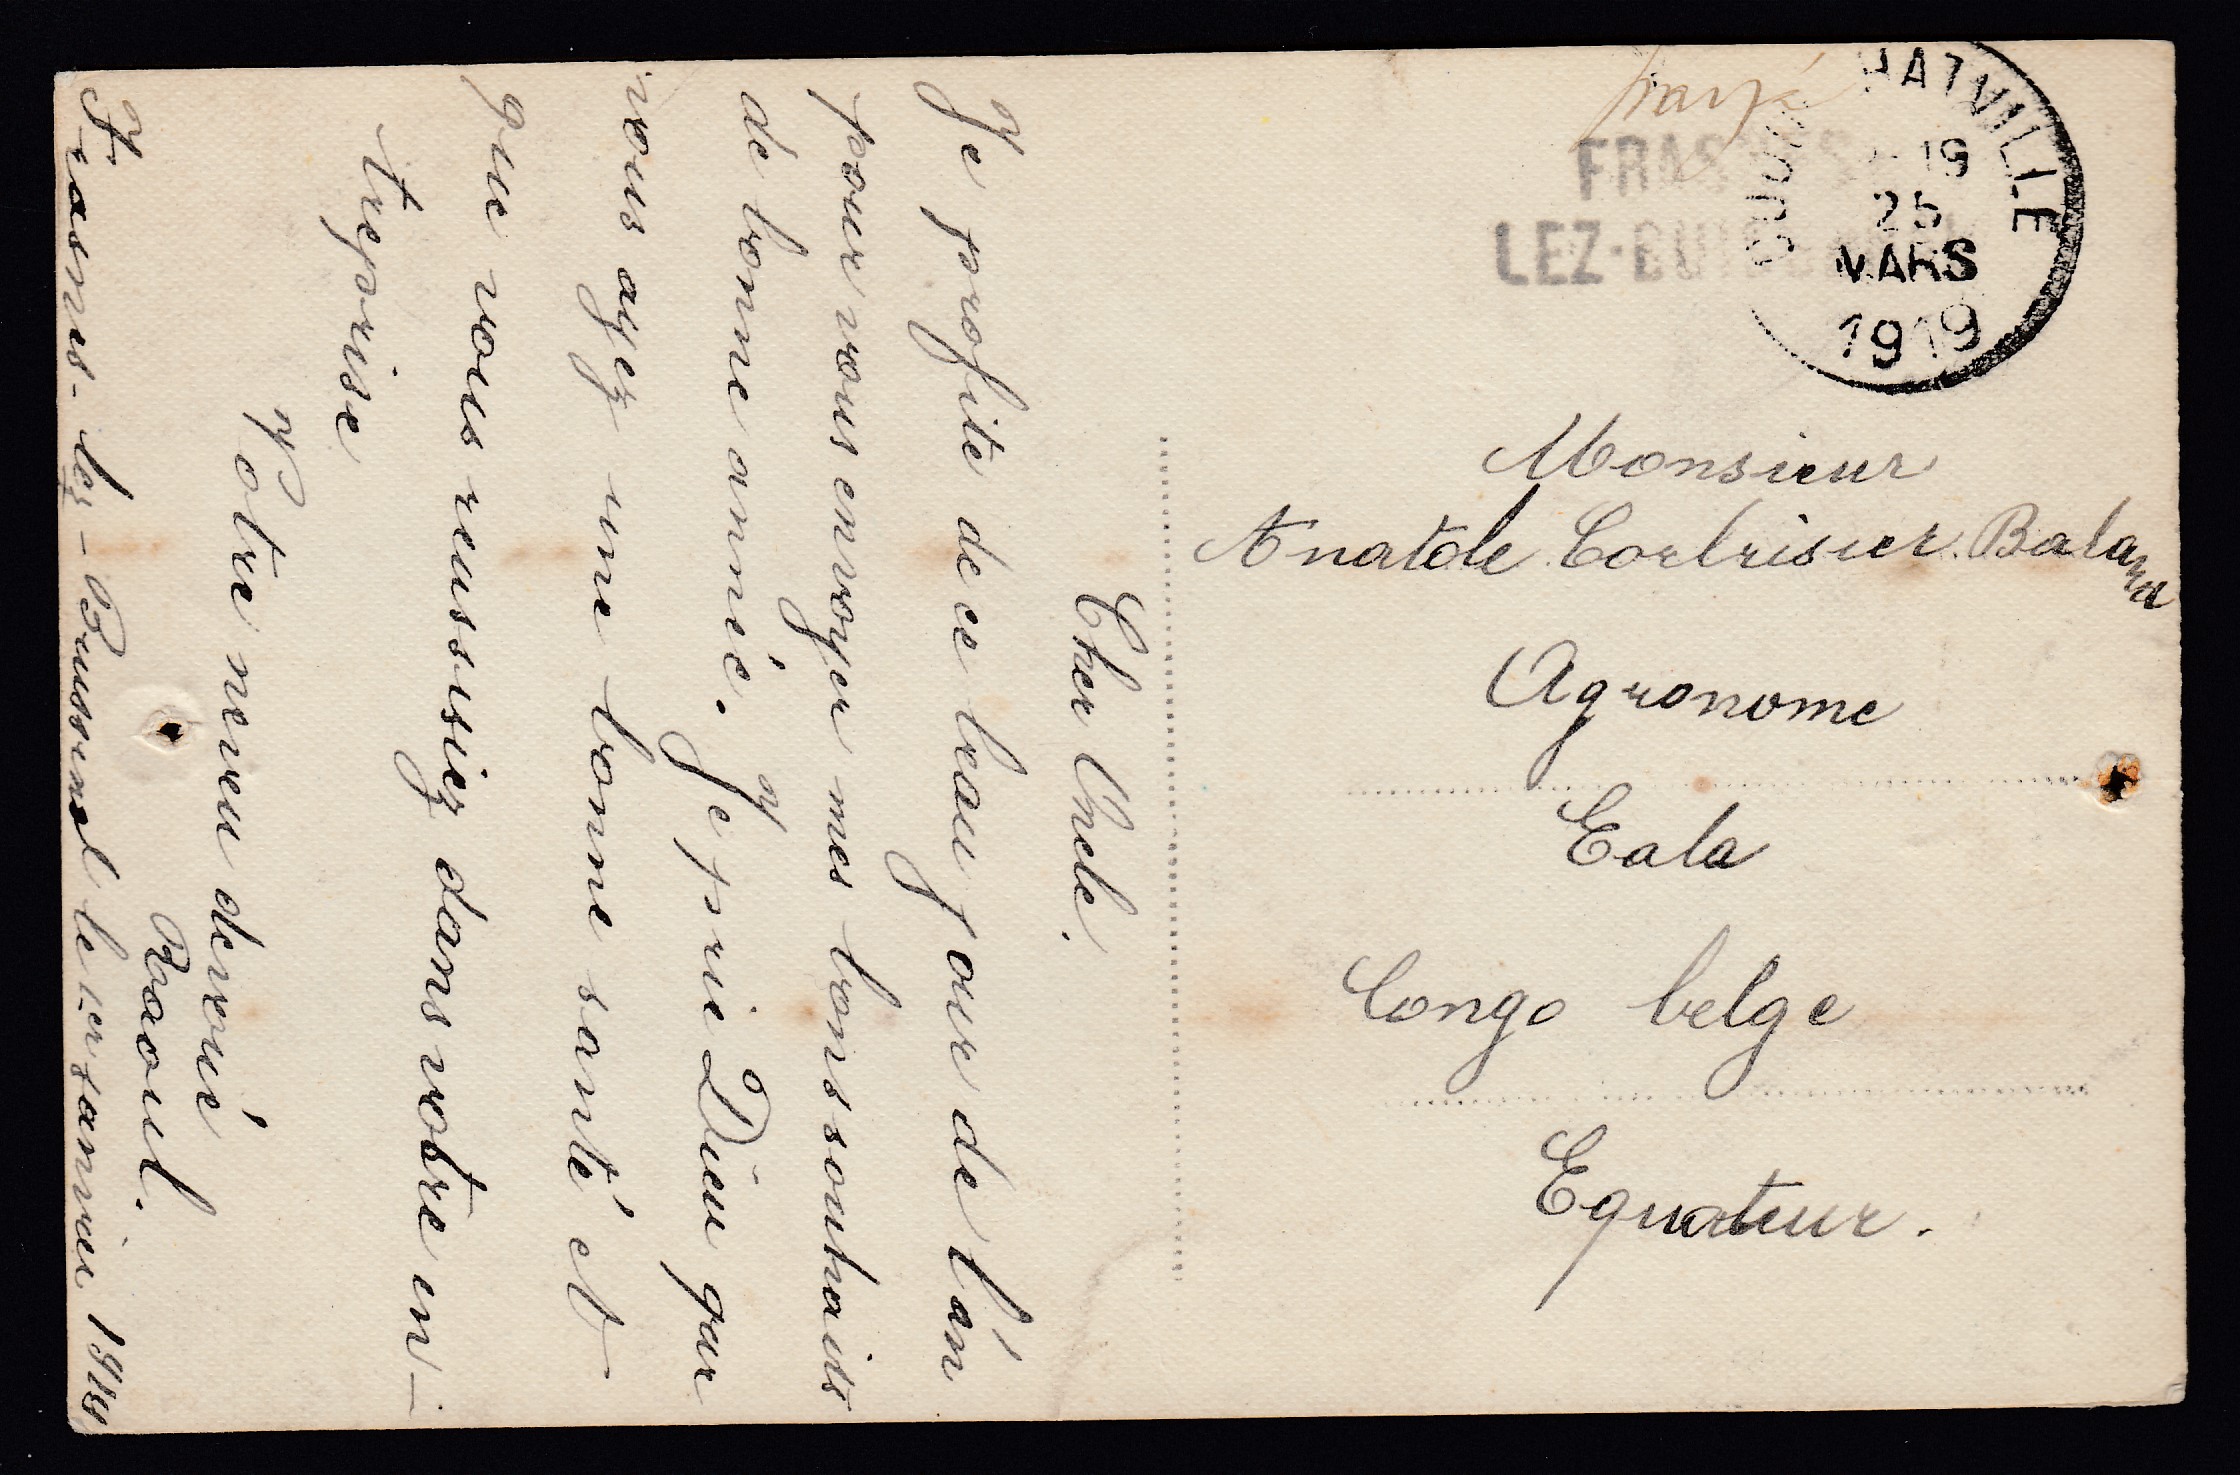 payé
FRASNES
LEZ-BUISSENAL
COQUILHATVILLE
- 19
25
MARS
1919
Monsieur
Anatole Corbisier. Baland
Agronome
Eala
Congo belge
Equateur.
Cher Oncle.
Je profite de ce beau jour de l'an
pour vous envoyer mes bons souhaits
de bonne année. Je prie Dieu que
vous ayez une bonne santé et
que vous reussissez dans votre en-
treprise
Votre neveu dévoué
Raoul.
Frasnes-lez-Buissenal le 1er janvier 1919